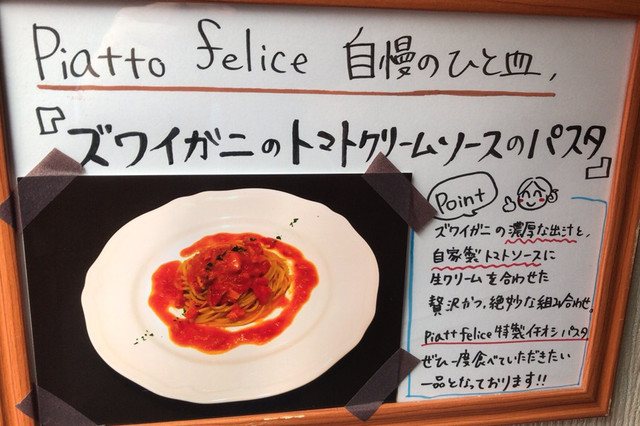 Piatto felice 自慢のひと皿,
『ズワイガニのトマトクリームソースのパスタ』
Point
ズワイガニの濃厚な出汁と、
自家製トマトソースに
生クリームを合わせた
贅沢かつ、絶妙な組み合わせ。
Piatt felice 特製イチオシパスタ
ぜひ一度食べていただきたい
一品となっております!!